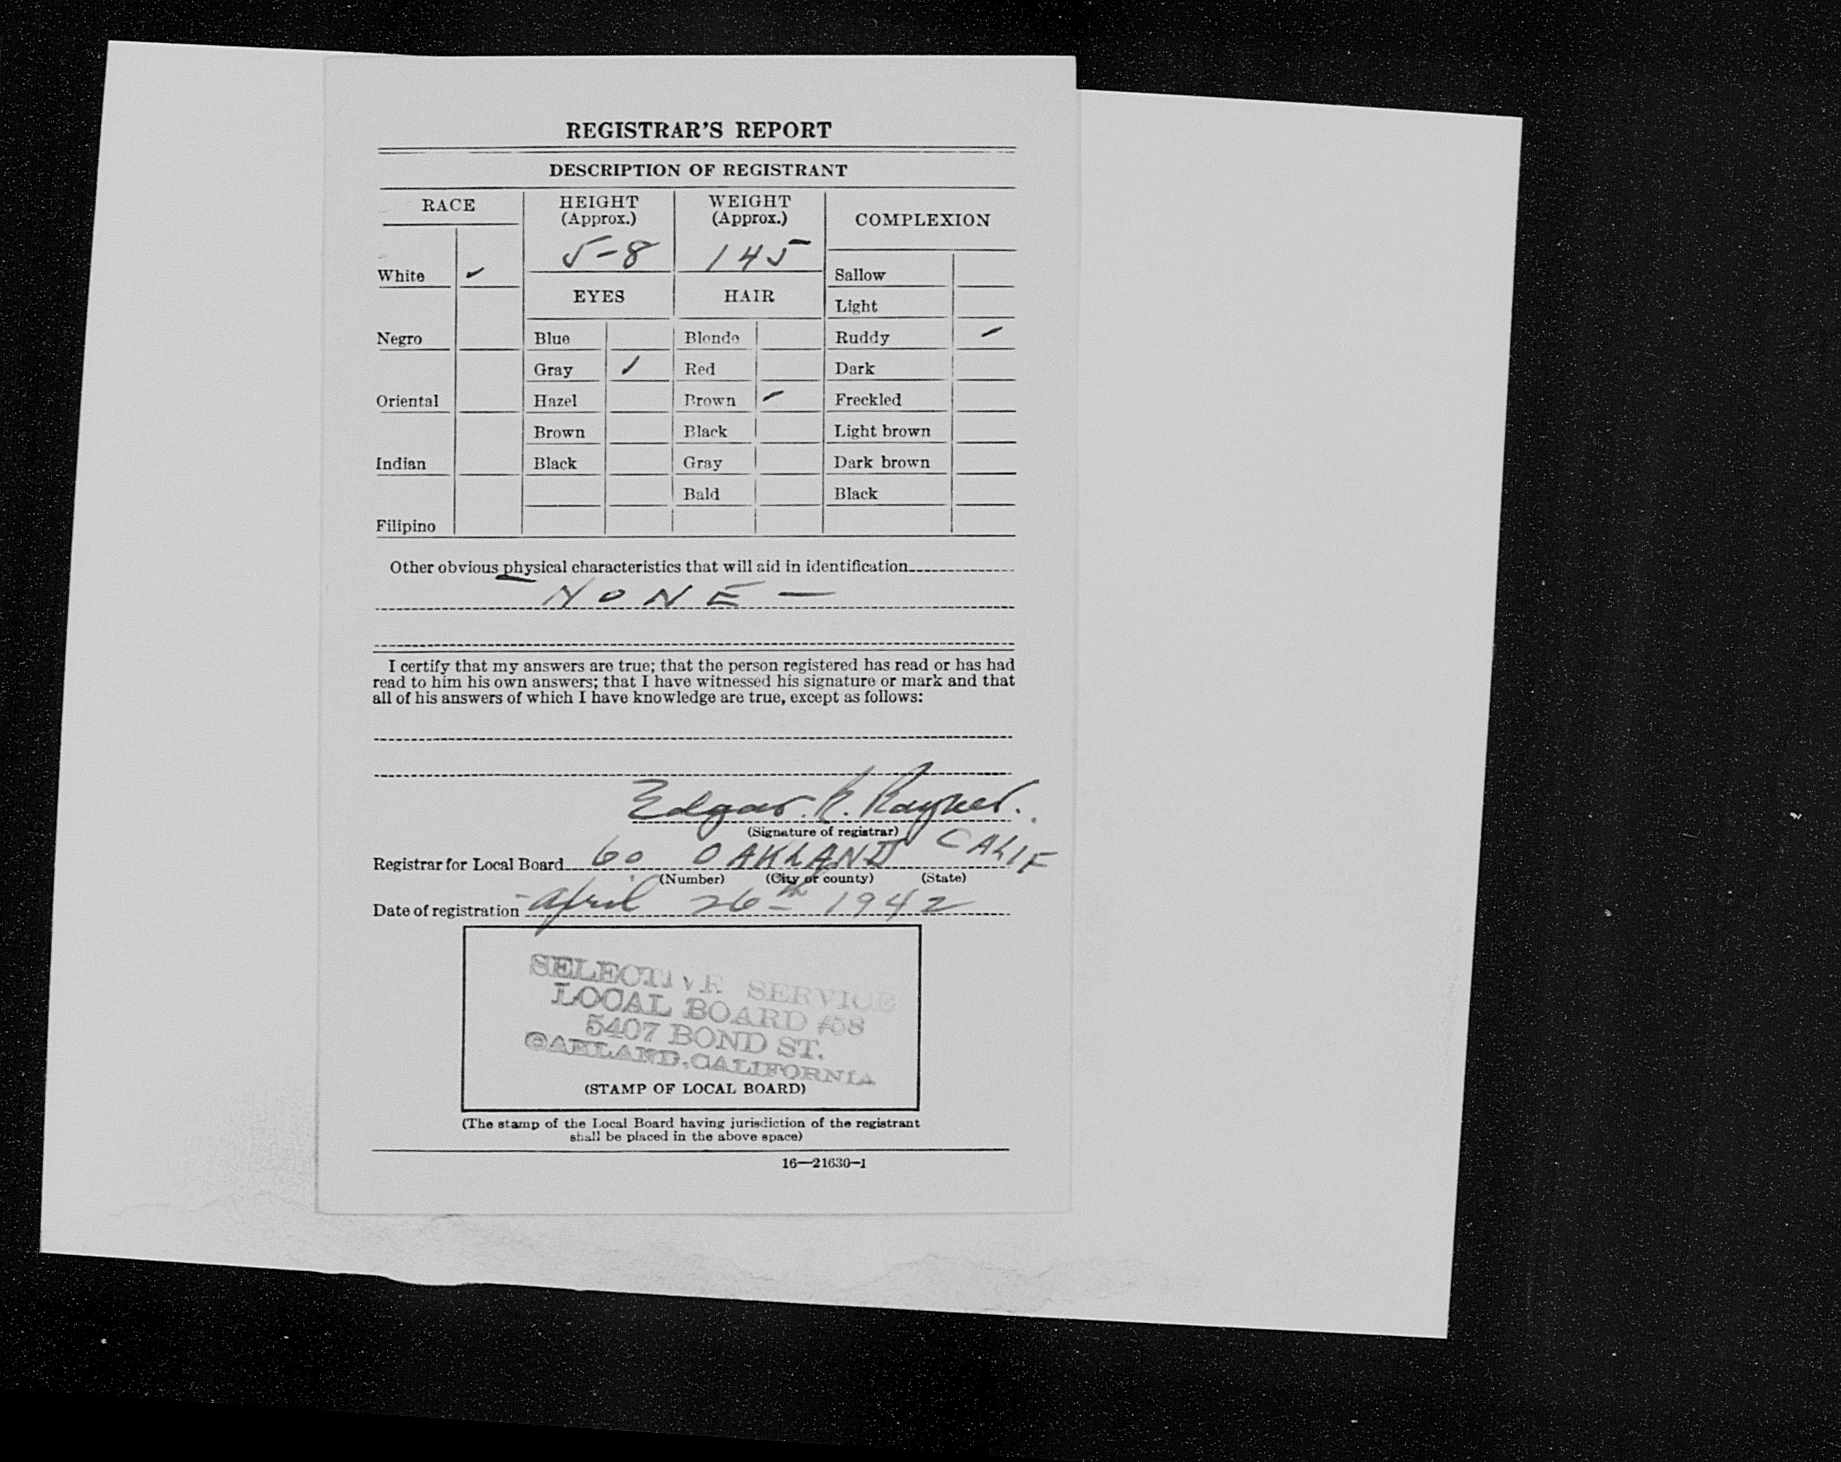 REGISTRAR'S REPORT
DESCRIPTION OF REGISTRANT
RACE HEIGHT (Approx.) WEIGHT (Approx.) COMPLEXION
5-8 145
White ✓ Sallow
EYES HAIR
Light
Negro Blue Blonde Ruddy ✓
Gray ✓ Red Dark
Oriental Hazel Brown ✓ Freckled
Brown Black Light brown
Indian Black Gray Dark brown
Bald Black
Filipino
Other obvious physical characteristics that will aid in identification
NONE —
I certify that my answers are true; that the person registered has read or has had
read to him his own answers; that I have witnessed his signature or mark and that
all of his answers of which I have knowledge are true, except as follows:
Edgar R. Rayner.
(Signature of registrar)
Registrar for Local Board 60 OAKLAND CALIF
(Number) (City or county) (State)
Date of registration April 26th 1942
SELECTIVE SERVICE
LOCAL BOARD #58
5407 BOND ST.
OAKLAND, CALIFORNIA
(STAMP OF LOCAL BOARD)
(The stamp of the Local Board having jurisdiction of the registrant
shall be placed in the above space)
16—21630-1